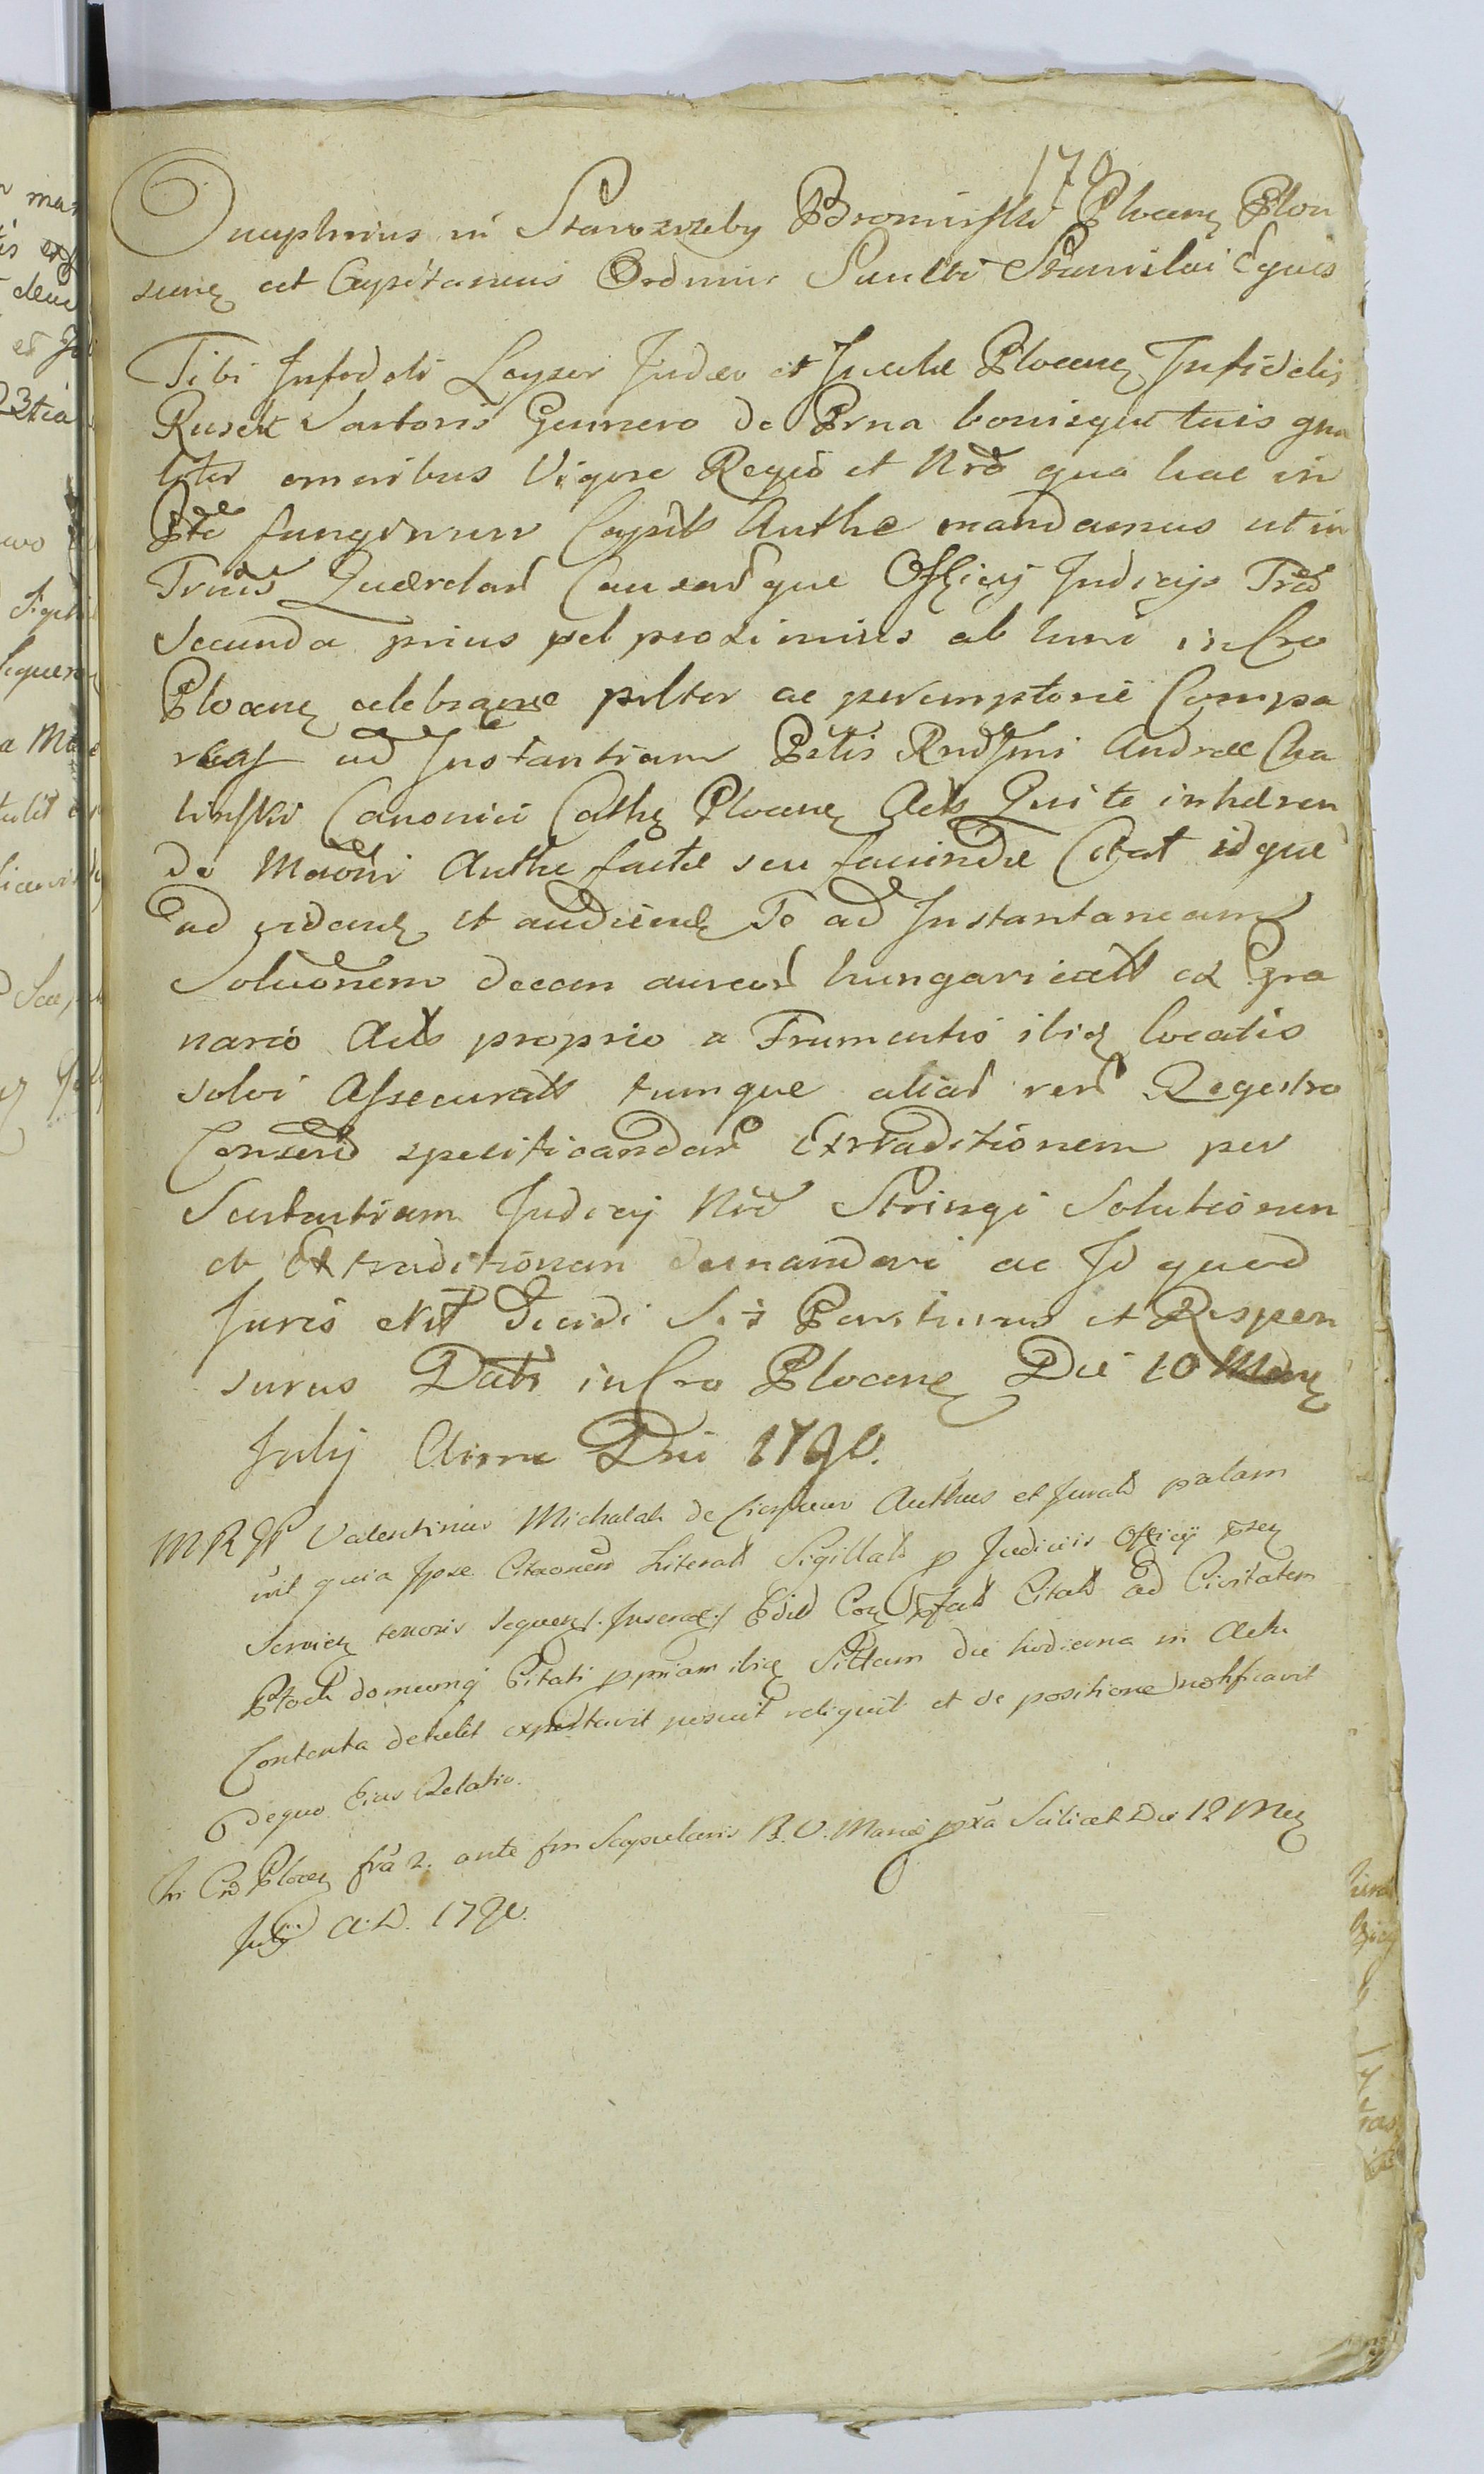 170
Onuphrius in Starozreby Bromirski Plocen Plon
scen et Capitaneus Ordinis Sancti Stanislai Eques
Tibi Infideli Leyser Judaeo et Incolae Plocen Infidelis
Rusek Sartoris Genero de Prna bonisque tuis gna
liter omnibus Vigore Regia et Nra qua hac in
Pte fungimur Capitli Authe mandamus ut in
Trnis Querelar Causarque Officij Judicijs Fria
Secunda prius vel proximius ab hinc in Cro
Plocen celebran pnliter ac peremptorie Compa
reas ad Instantiam Prtis Rndssmi Andreae Cha
linski Canonici Cathe Plocen Acts Qui te inhaeren
do Maoni Authe factae seu faciendae Citat idque
ad viden et audien Te ad Instantaneam
Soluonem decem aureor hungaricall ex Gra
nario Acts proprio a Frumentis ibiq locatis
solvi Assecurats tumque aliar rerũ Regestro
Conserib specificandar Extraditionem per
Sententiam Judicij Nri Stringi Solutionem
et Extraditionem demandari ac Id quod
Juris erit Decidi Sis Pariturus et Respon
surus Datt in Cro Plocen Die 10 Men
July Anno Dni 1790.
MRGP Valentinus Michalak de Ciachcin Authus et Jurats palam
uit quia Ipse Citaonem Literals Sigillats p Judiciis Officij pren
Servien tenoris sequen /: Inserae :/ Edid Con pfats Citats ad Civitatem
Plock domumq Citati ppriam ibiq Sittam die hodierna in Actu
Contenta detulit exportavit posuit reliquit et de positione notificavit
dequo Eius Relatio.
In Cro Plocen fria 2. ante fm Scapularis B. V. Mariae pxa Scilicet Die 12 Men
July A. D. 1790.